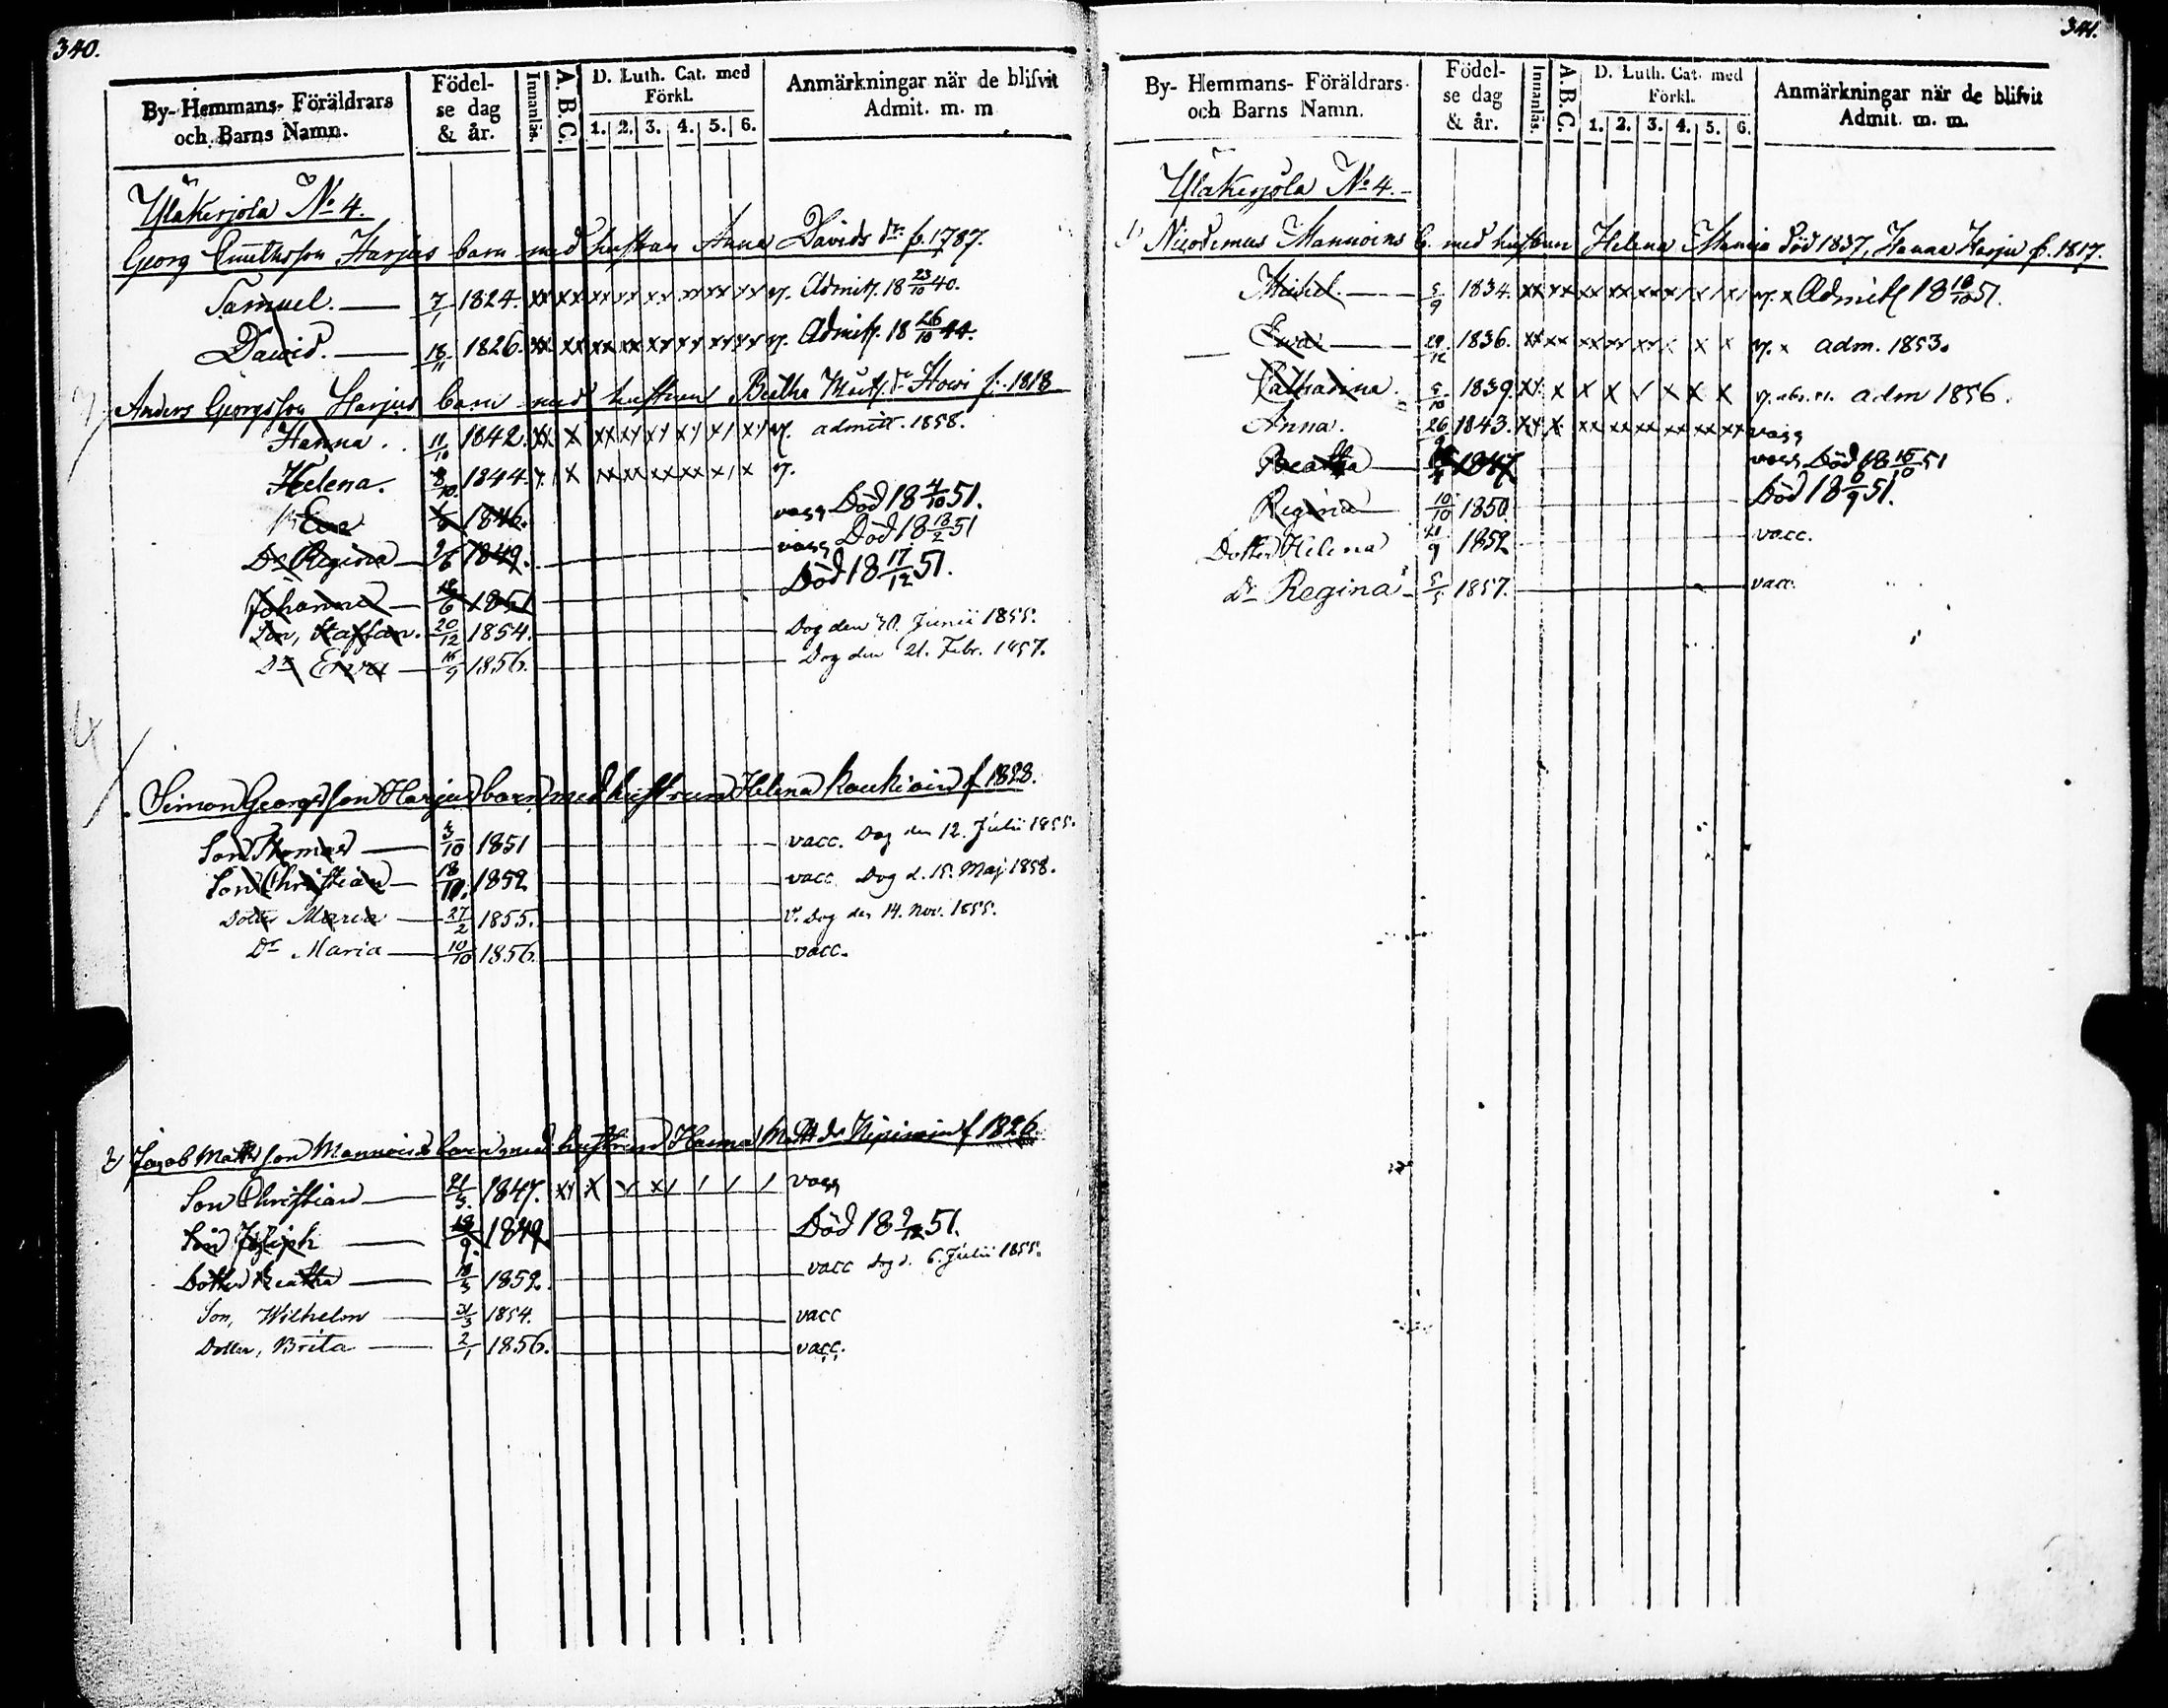 340.
By- Hemmans- Föräldrars och Barns Namn. Födelse dag & år. Innanläs. A. B. C. D. Luth. Cat. med Förkl. 1. 2. 3. 4. 5. 6. Anmärkningar när de blifvit Admit. m. m
Yläkerjola No 4.
Georg Harjus barn med hustrun Anna Davids dr f. 1787.
Samuel. 7/1 1824. xx xx xx xx xx xx xx xx v. Admitt. 18 23/10 40.
David. 18/11 1826. xx xx xx xx xx xx xx xx v. Admitt. 18 26/10 44.
Anders Georgsson Harjus barn med hustrun Beatha dr Howi f. 1818
Hanna. 11/10 1842. xx x xx xx xx xx x/ x/ v. admitt. 1858.
Helena. 8/10 1844. x/ x xx xx xx xx x/ x v.
Eva 1846. vacc Död 18 4/10 51.
Dr Regina 2/6 1849. vacc Död 18 18/2 51
Johanna 18/6 1851 Död 18 17/12 51.
Son, Staffan. 20/12 1854. Dog den 30. Junii 1855.
Dr Eva 16/9 1856. Dog den 21. Febr. 1857.
4
Simon Georgsson Harjus barn med hustrun Helena Kaukiain f 1828.
Son Thomas 3/10 1851 vacc. Dog den 12. Julii 1855.
Son Christian 18/10. 1852 vacc Dog d. 15. Maj 1858.
Dotter Maria 27/2 1855. v. Dog den 14. Nov. 1855.
Dr Maria 10/10 1856 vacc.
2) Jacob Mattsson Mannoins barn med hustrun Hanna Matts dr f 1826.
Son Christian 21/3. 1847. x/ x v x/ / / / vacc
Son Joseph 18/9. 1849. Död 18 9/12 51.
Dotter Beatha 18/3 1852. vacc dog d. 6. Julii 1855.
Son, Wilhelm 31/3 1854. vacc
Dotter, Brita 2/1 1856. vacc.
341.
By- Hemmans- Föräldrars och Barns Namn. Födelse dag & år. Innanläs. A. B. C. D. Luth. Cat. med Förkl. 1. 2. 3. 4. 5. 6. Anmärkningar när de blifvit Admit. m. m.
Yläkerjola No 4.
1) Nicodemus Mannoins b. med hustrun Helena död 1837, Hanna Harju f. 1817.
Michel. 5/9 1834. xx xx xx xx xx x/ x/ x/ v. x Admitt 18 18/10 51.
Eva 29/12 1836. xx xx xx xx xx x x x v. x adm. 1853.
Catharina. 5/10 1839. xx. x x x v x x x v. adm 1856.
Anna. 26/9 1843. xx x xx xx xx xx xx xx vacc
Beatha 1847 vacc Död 18 15/10 51
Regina 10/10 1850. Död 18 6/9 51.
Dotter Helena 21/9 1852 vacc.
Dr Regina 5/5 1857. vacc.